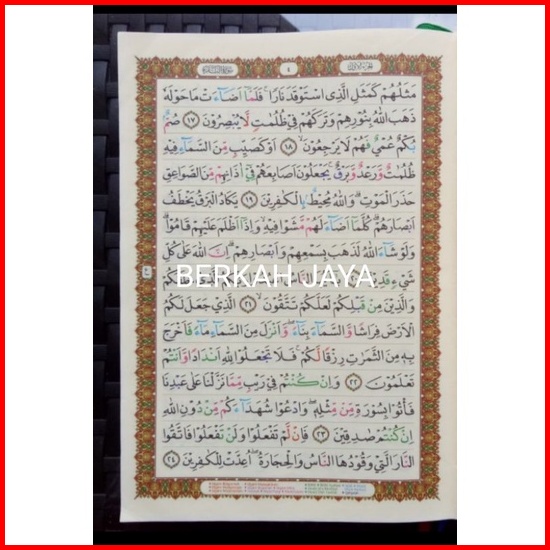 الجزء الأول
٤
سورة البقرة
مَثَلُهُمْ كَمَثَلِ الَّذِى اسْتَوْقَدَ نَارًا ۚ فَلَمَّآ اَضَاۤءَتْ مَا حَوْلَهٗ
ذَهَبَ اللّٰهُ بِنُوْرِهِمْ وَتَرَكَهُمْ فِيْ ظُلُمٰتٍ لَّا يُبْصِرُوْنَ ﴿١٧﴾ صُمٌّ ۢ
بُكْمٌ عُمْيٌ فَهُمْ لَا يَرْجِعُوْنَ ۙ ﴿١٨﴾ اَوْ كَصَيِّبٍ مِّنَ السَّمَاۤءِ فِيْهِ
ظُلُمٰتٌ وَّرَعْدٌ وَّبَرْقٌ ۚ يَجْعَلُوْنَ اَصَابِعَهُمْ فِيْٓ اٰذَانِهِمْ مِّنَ الصَّوَاعِقِ
حَذَرَ الْمَوْتِ ۗ وَاللّٰهُ مُحِيْطٌ ۢ بِالْكٰفِرِيْنَ ﴿١٩﴾ يَكَادُ الْبَرْقُ يَخْطَفُ
اَبْصَارَهُمْ ۗ كُلَّمَآ اَضَاۤءَ لَهُمْ مَّشَوْا فِيْهِ ۙ وَاِذَآ اَظْلَمَ عَلَيْهِمْ قَامُوْا ۗ
وَلَوْ شَاۤءَ اللّٰهُ لَذَهَبَ بِسَمْعِهِمْ وَاَبْصَارِهِمْ ۗ اِنَّ اللّٰهَ عَلٰى كُلِّ
شَيْءٍ قَدِيْرٌ النَّاسُ
BERKAH JAYA
وَالَّذِيْنَ مِنْ قَبْلِكُمْ لَعَلَّكُمْ تَتَّقُوْنَ ۙ ﴿٢١﴾ الَّذِيْ جَعَلَ لَكُمُ
الْاَرْضَ فِرَاشًا وَّالسَّمَاۤءَ بِنَاۤءً ۖ وَّاَنْزَلَ مِنَ السَّمَاۤءِ مَاۤءً فَاَخْرَجَ
بِهٖ مِنَ الثَّمَرٰتِ رِزْقًا لَّكُمْ ۚ فَلَا تَجْعَلُوْا لِلّٰهِ اَنْدَادًا وَّاَنْتُمْ
تَعْلَمُوْنَ ﴿٢٢﴾ وَاِنْ كُنْتُمْ فِيْ رَيْبٍ مِّمَّا نَزَّلْنَا عَلٰى عَبْدِنَا
فَأْتُوْا بِسُوْرَةٍ مِّنْ مِّثْلِهٖ ۖ وَادْعُوْا شُهَدَاۤءَكُمْ مِّنْ دُوْنِ اللّٰهِ
اِنْ كُنْتُمْ صٰدِقِيْنَ ﴿٢٣﴾ فَاِنْ لَّمْ تَفْعَلُوْا وَلَنْ تَفْعَلُوْا فَاتَّقُوا
النَّارَ الَّتِيْ وَقُوْدُهَا النَّاسُ وَالْحِجَارَةُ ۖ اُعِدَّتْ لِلْكٰفِرِيْنَ ﴿٢٤﴾